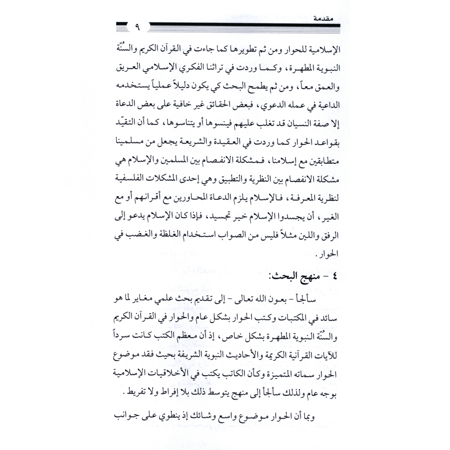 مقدمة
٩
الإسلامية للحوار ومن ثم تطويرها كما جاءت في القرآن الكريم والسنّة
النبوية المطهرة، وكما وردت في تراثنا الفكري الإسلامي العريق
والعمق معاً، ومن ثم يطمح البحث كي يكون دليلاً عملياً يستخدمه
الداعية في عمله الدعوي، فبعض الحقائق غير خافية على بعض الدعاة
إلا صفة النسيان قد تغلب عليهم فينسوها أو يتناسوها، كما أن التقيّد
بقواعد الحوار كما وردت في العقيدة والشريعة يجعل من مسلمينا
متطابقين مع إسلامنا، فمشكلة الانفصام بين المسلمين والإسلام هي
مشكلة الانفصام بين النظرية والتطبيق وهي إحدى المشكلات الفلسفية
لنظرية المعرفة، فالإسلام يلزم الدعاة المحاورين مع أقرانهم أو مع
الغير، أن يجسدوا الإسلام خير تجسيد، فإذا كان الإسلام يدعو إلى
الرفق واللين مثلاً فليس من الصواب استخدام الغلظة والغضب في
الحوار.
٤ - منهج البحث:
سألجأ - بعون الله تعالى - إلى تقديم بحث علمي مغاير لما هو
سائد في المكتبات وكتب الحوار بشكل عام والحوار في القرآن الكريم
والسنّة النبوية المطهرة بشكل خاص، إذ أن معظم الكتب كانت سرداً
للآيات القرآنية الكريمة والأحاديث النبوية الشريفة بحيث فقد موضوع
الحوار سماته المتميزة وكأن الكاتب يكتب في الأخلاقيات الإسلامية
بوجه عام ولذلك سألجأ إلى منهج يتوسط ذلك بلا إفراط ولا تفريط.
وبما أن الحوار موضوع واسع وشائك إذ ينطوي على جوانب